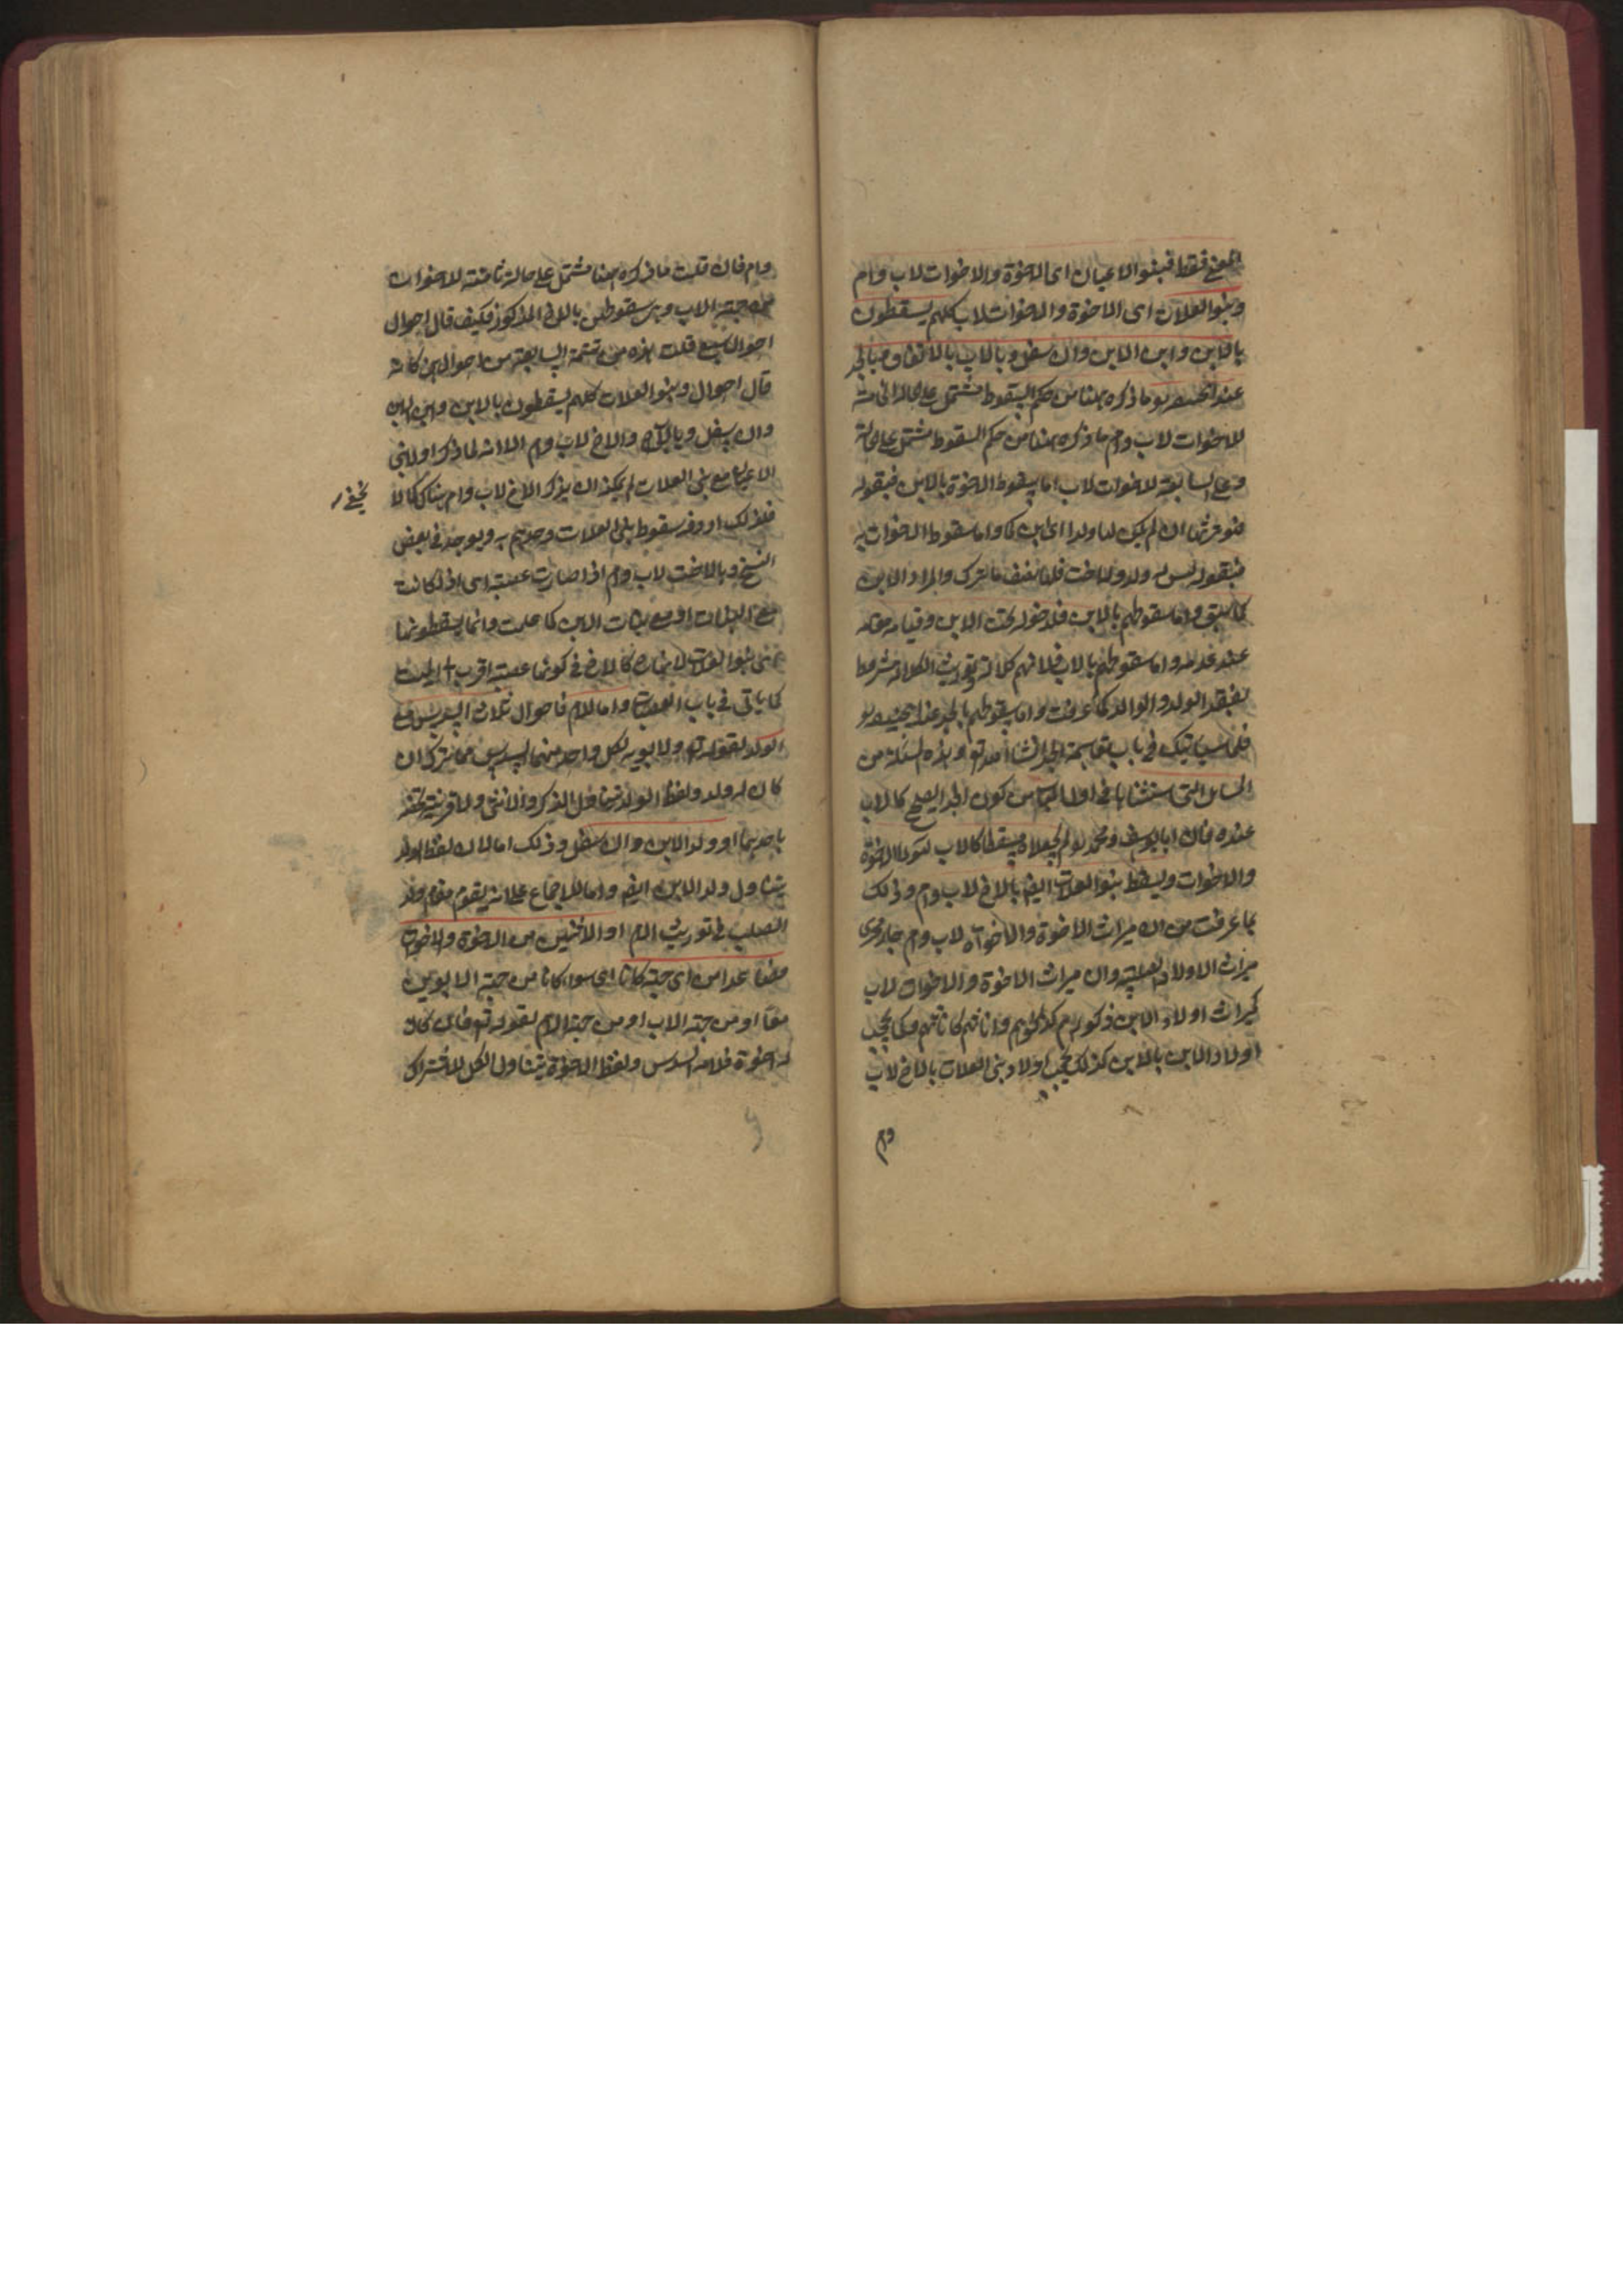 المعنى فقط فبنوا الاعيان اى الاخوة والاخوات لاب وام
وبنوا العلات اى الاخوة والاخوات لاب كلهم يسقطون
بالابن وابن الابن وان سفل وبالاب بالاتفاق وبالجد
عند ابيحنيفه وما ذكره ههنا من حكم السقوط مشتمل على
للاخوات لاب وام ما ذكره ههنا من حكم السقوط مشتمل على حالة
وعلى السابعة للاخوات لاب اما سقوط الاخوة بالابن فبقوله
وهو يرثها ان لم يكن لها ولد اى ابن كما واما سقوط الاخوات به
فبقوله ليس له ولد وله اخت فلها نصف ما ترك والمراد الابن
كما سبق واما سقوطهم بابن الابن فلدخوله تحت الابن وقيامه مقامه
عند عدمه واما سقوطهم بالاب فلانهم كلالة وتوريث الكلالة مشروط
بفقد الولد والوالد كما عرفت واما سقوطهم بالجد عند ابيحنيفه
فلما سياتيك فى باب مقاسمة الجد انشا الله تع وهذه المسئلة من
المسائل التى استثناها فى اول الكتاب من كون الجد الصحيح كالاب
عنده فان ابا يوسف ومحمد لم يجعلاه مسقطا كالاب للاخوة
والاخوات ويسقط بنوا العلات ايضا بالاخ لاب وام وذلك
بما عرفت من ان ميراث الاخوة والاخوات لاب وام جار مجرى
ميراث الاولاد الصلبية وان ميراث الاخوة والاخوات لاب
كميراث اولاد الابن ذكورهم كذكورهم واناثهم كاناثهم فكما يحجب
اولاد الابن بالابن كذلك يحجب اولاد بنى العلات بالاخ لاب
وام
وام فان قلت ما ذكره ههنا مشتمل على حالة ثامنة للاخوات
من جهة الاب وهى سقوطهن بالاخ المذكور فكيف قال احوال
احوال سبع قلت هذه من تتمة السابعة من احوالهن كانه
قال احوال وبنوا العلات كلهم يسقطون بالابن وابن الابن
وان سفل وبالاب والاخ لاب وام الا انه لما ذكر اولا بنى
الاعيان مع بنى العلات لم يمكنه ان يذكر الاخ لاب وام هناك كما لا
يخفى
فلذلك افرد سقوط بنى العلات وحدهم به ويوجد فى بعض
النسخ وبالاخت لاب وام اذا صارت عصبة اى اذا كانت
مع البنات او مع بنات الابن كما علمت وانما يسقطونها
بنوا العلات لانها كالاخ فى كونها عصبة اقرب الى الميت
كما ياتى فى باب العصبات واما للام فاحوال ثلاث السدس مع
الولد لقوله تع ولابويه لكل واحد منهما السدس مما ترك ان
كان له ولد ولفظ الولد يتناول الذكر والانثى ولا قرينة تخصه
باحدهما او ولد الابن وان سفل وذلك اما لان لفظ الولد
يتناول ولد الابن ايضا واما للاجماع على انه يقوم مقام ولد
الصلب فى توريث الام او الاثنين من الاخوة والاخوات
فصاعدا من اى جهة كانا اى سواء كانا من جهة الابوين
معا او من جهة الاب او من جهة الام لقوله تع فان كان
له اخوة فلامه السدس ولفظ الاخوة يتناول الكل للاشتراك